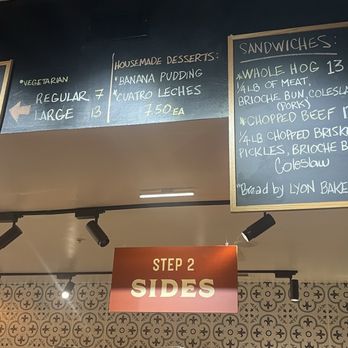 *VEGETARIAN
REGULAR 7
LARGE 13
HOUSEMADE DESSERTS:
*BANANA PUDDING
*CUATRO LECHES
7.50 EA
SANDWICHES:
*WHOLE HOG 13
1/4 LB OF MEAT,
BRIOCHE BUN, COLESLA
(PORK)
*CHOPPED BEEF 1
1/4 LB CHOPPED BRISKE
PICKLES, BRIOCHE B
COLESLAW
*Bread by LYON BAKE
STEP 2
SIDES